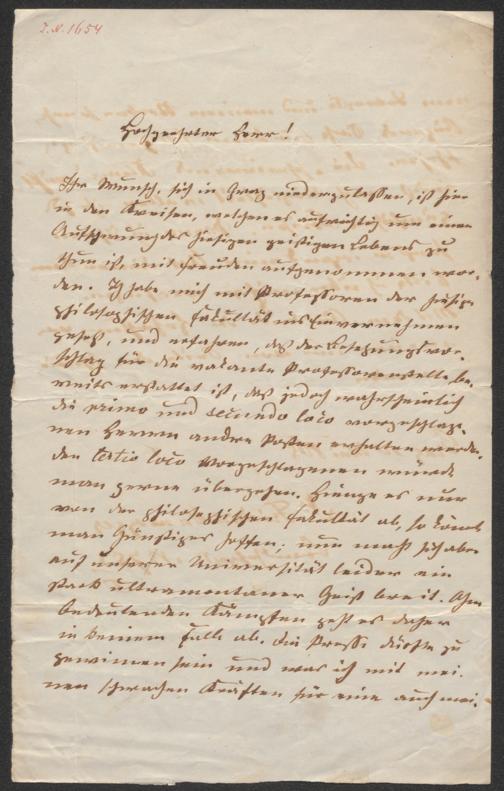 I.N. 1654
Hochgeehrter Herr!
Ihr Wunsch, sich in Graz niederzulassen, ist hier
in den Kreisen, welchen es aufrichtig um einen
Aufschwung des hiesigen geistigen Lebens zu
thun ist, mit Freuden aufgenommen wor-
den. Ich habe mich mit Professoren der hiesigen
philosophischen Fakultät ins Einvernehmen
gesetzt, und erfahren, daß der Besetzungsvor-
schlag für die vakante Professorenstelle be-
reits erstattet ist, daß jedoch wahrscheinlich
die primo und secundo loco vorgeschlage-
nen Herren andre Posten erhalten werden.
den tertio loco vorgeschlagenen würde
man gerne übergehen. Hienge es nur
von der philosophischen Fakultät ab, so könnte
man Günstiges hoffen; nun macht sich aber
auf unserer Universität leider ein
stark ultramontaner Geist breit. Ohne
bedeutenden Kämpfen geht es daher
in keinem Falle ab. Die Presse dürfte zu
gewinnen sein und was ich mit mei-
nen schwachen Kräften für eine auch mei-